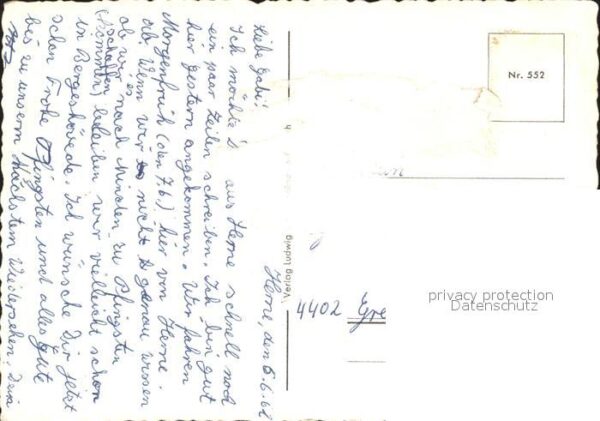 Herne, den 6.6.62
Liebe Gabi!
Ich möchte aus Herne schnell noch
ein paar Zeilen schreiben. Ich bin gut
hier gestern angekommen. Wir fahren
Morgenfrüh (den 7.6.) hier von Herne
ab. Wenn wir es nicht genau wissen
ob wir nach Minden zu Pfingsten
kommen, bleiben wir vielleicht schon
in Bergeshövede. Ich wünsche Dir jetzt
schon Frohe Pfingsten und alles Gute
bis zu unserm nächsten Wiedersehn! Deine
Verlag Ludwig
Nr. 552
4402 Gre
privacy protection
Datenschutz